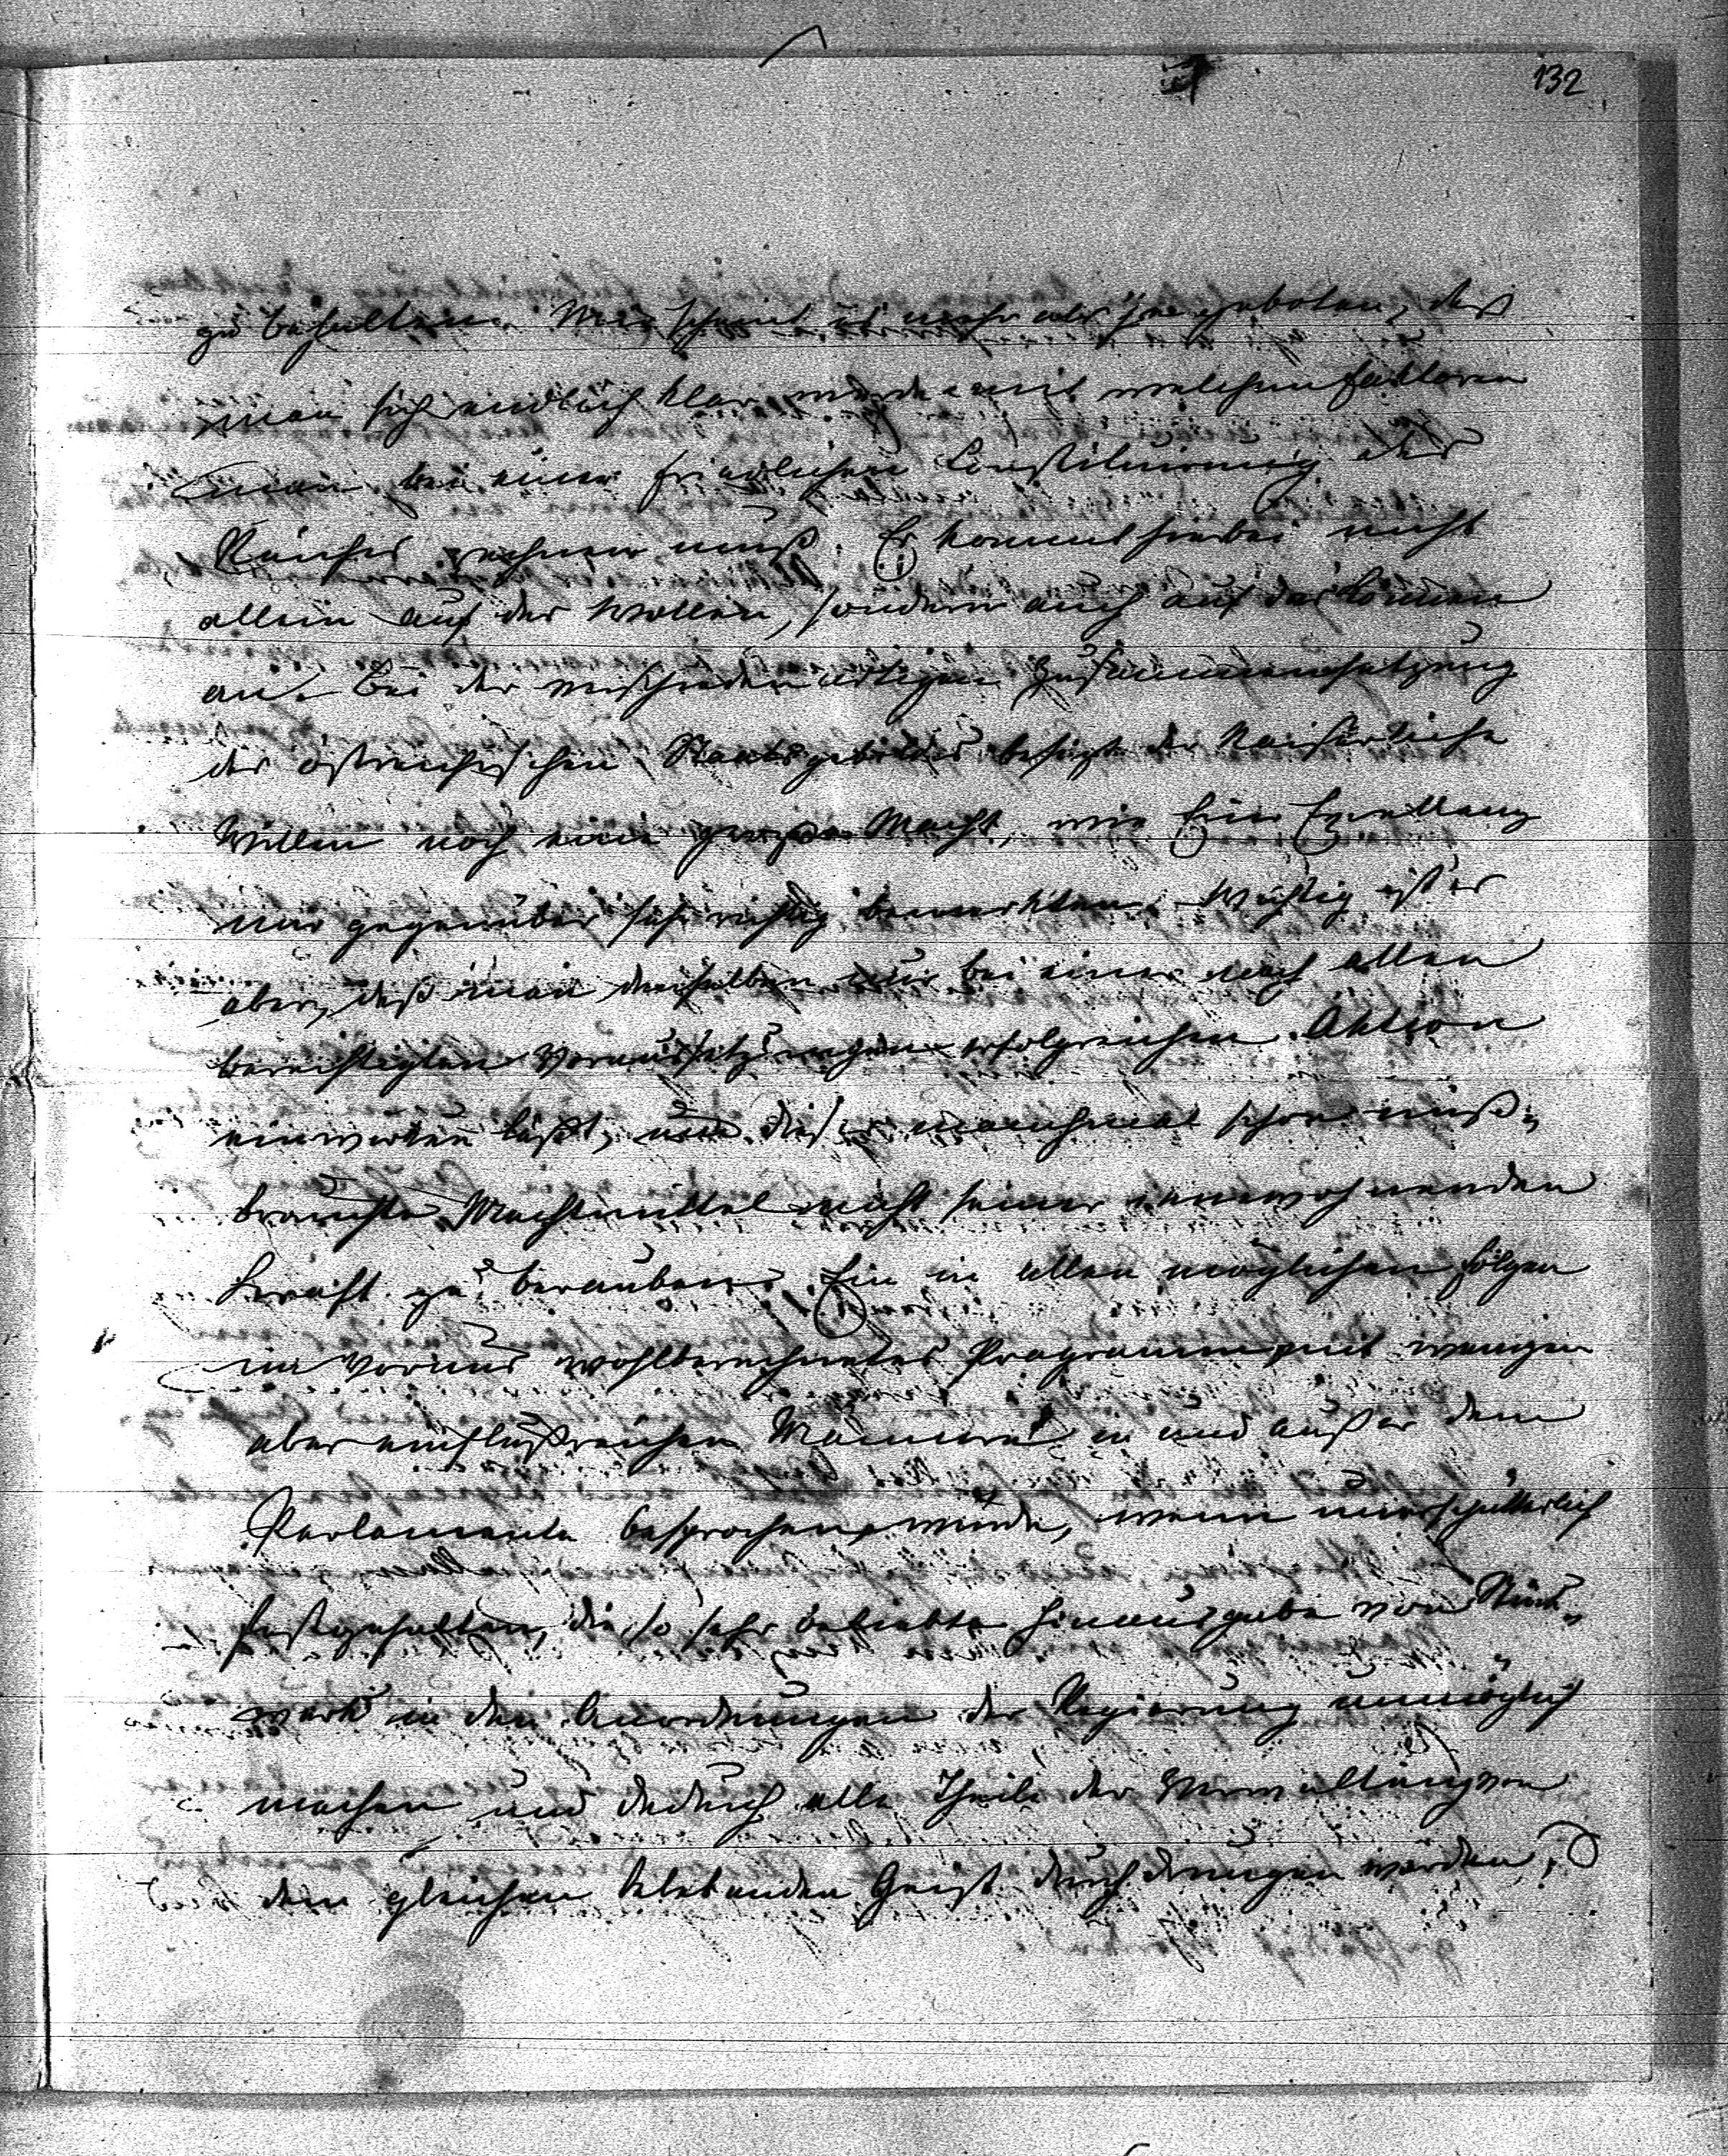 132
zu behalten. Mir scheint es mehr als je geboten, daß
man sich endlich klar werde mit welchen Faktoren
man bei einer friedlichen Constituirung des
Reiches rechnen muß. Es kommt hierbei nicht
allein auf das Wollen, sondern auch auf das Können
an. Bei der verschiedenartigen Zusammensetzung
des östreichischen Staatsgebildes besitzt der Kaiserliche
Willen noch eine große Macht, wie Eure Excellenz
mir gegenüber sehr richtig bemerkten. Wichtig ist es
aber, daß man denselben nur bei einer nach allen
berechtigten Voraussetzungen erfolgreichen Aktion
einwirken läßt, um dieses manchmal schon miß-
brauchte Machtmittel nicht seiner innewohnenden
Kraft zu berauben. Ein in allen möglichen Folgen
im Voraus wohlberechnetes Programm mit wenigen
aber einflußreichen Männern in und außer dem
Parlamente besprochen würde, wenn unerschütterlich
festgehalten, die so sehr beliebte Hinausgabe von Stück-
werk in den Anordnungen der Regierung unmöglich
machen und dadurch alle Theile der Verwaltung von
dem gleichen belebenden Geist durchdrungen werden,